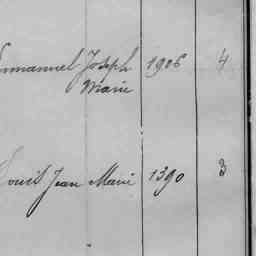 Emmanuel Joseph 1906 4
Marie
Louis Jean Marie 1390 3